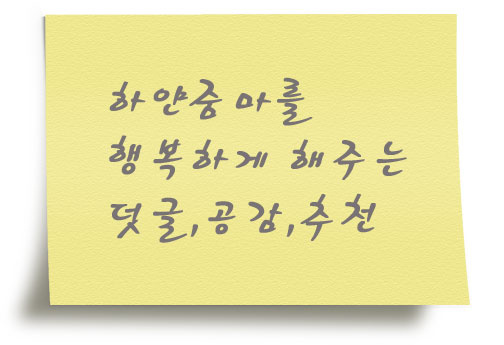 하얀중마를
행복하게 해주는
덧글,공감,추천